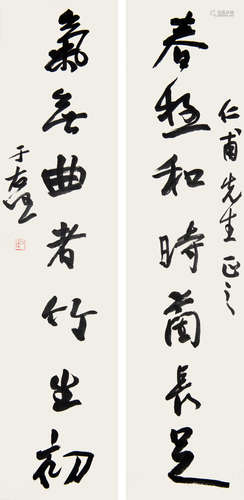 仁甫先生正之
春極和時蘭長足
氣無曲者竹生初
于右任